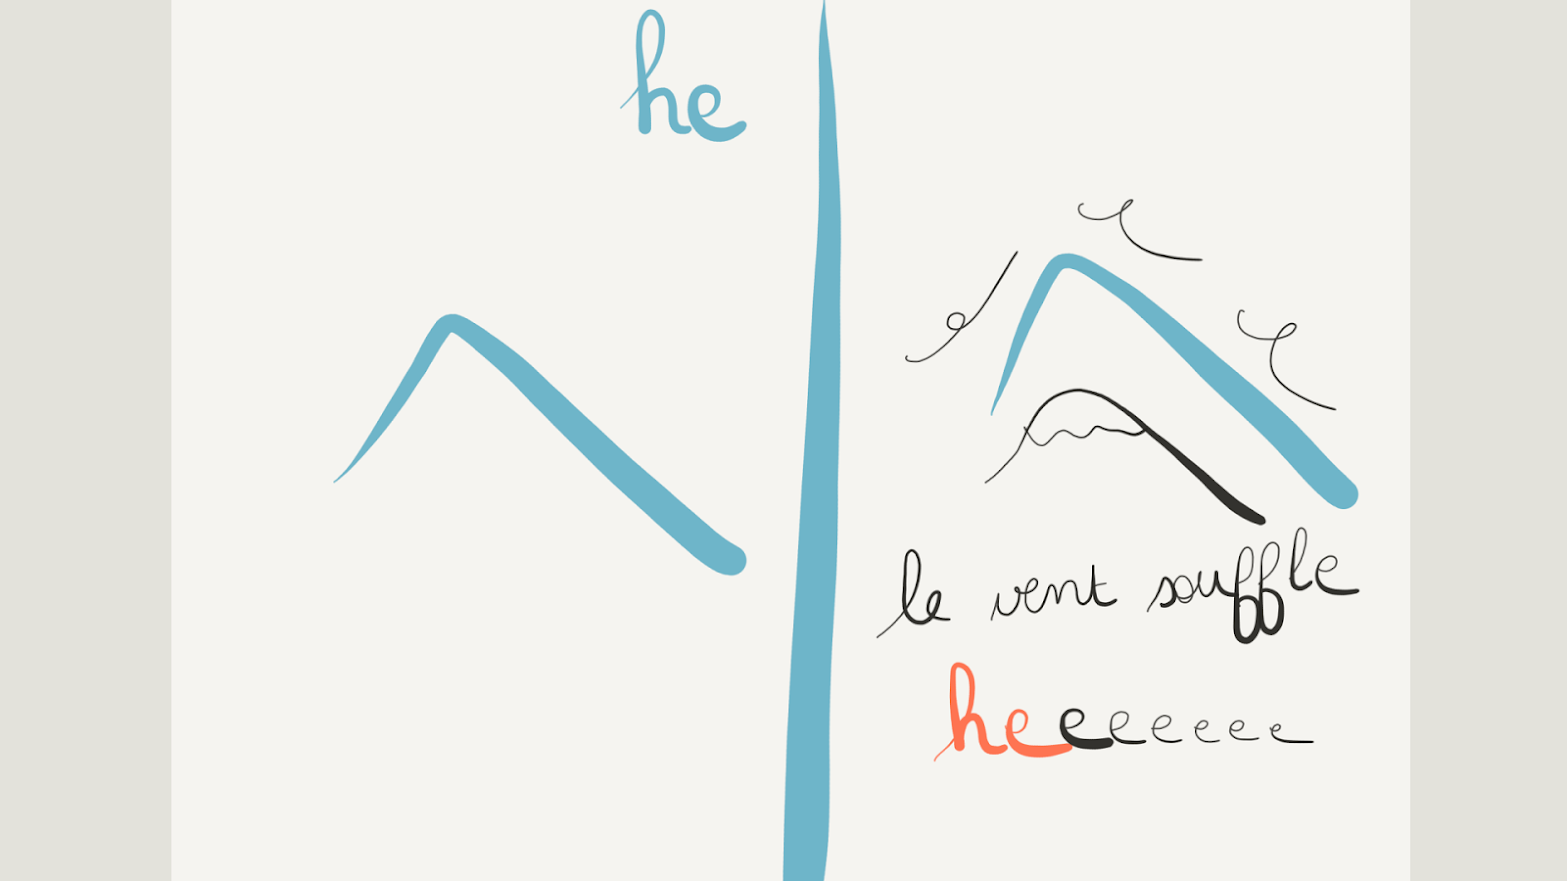 he
へ
le vent souffle
heeeeeee